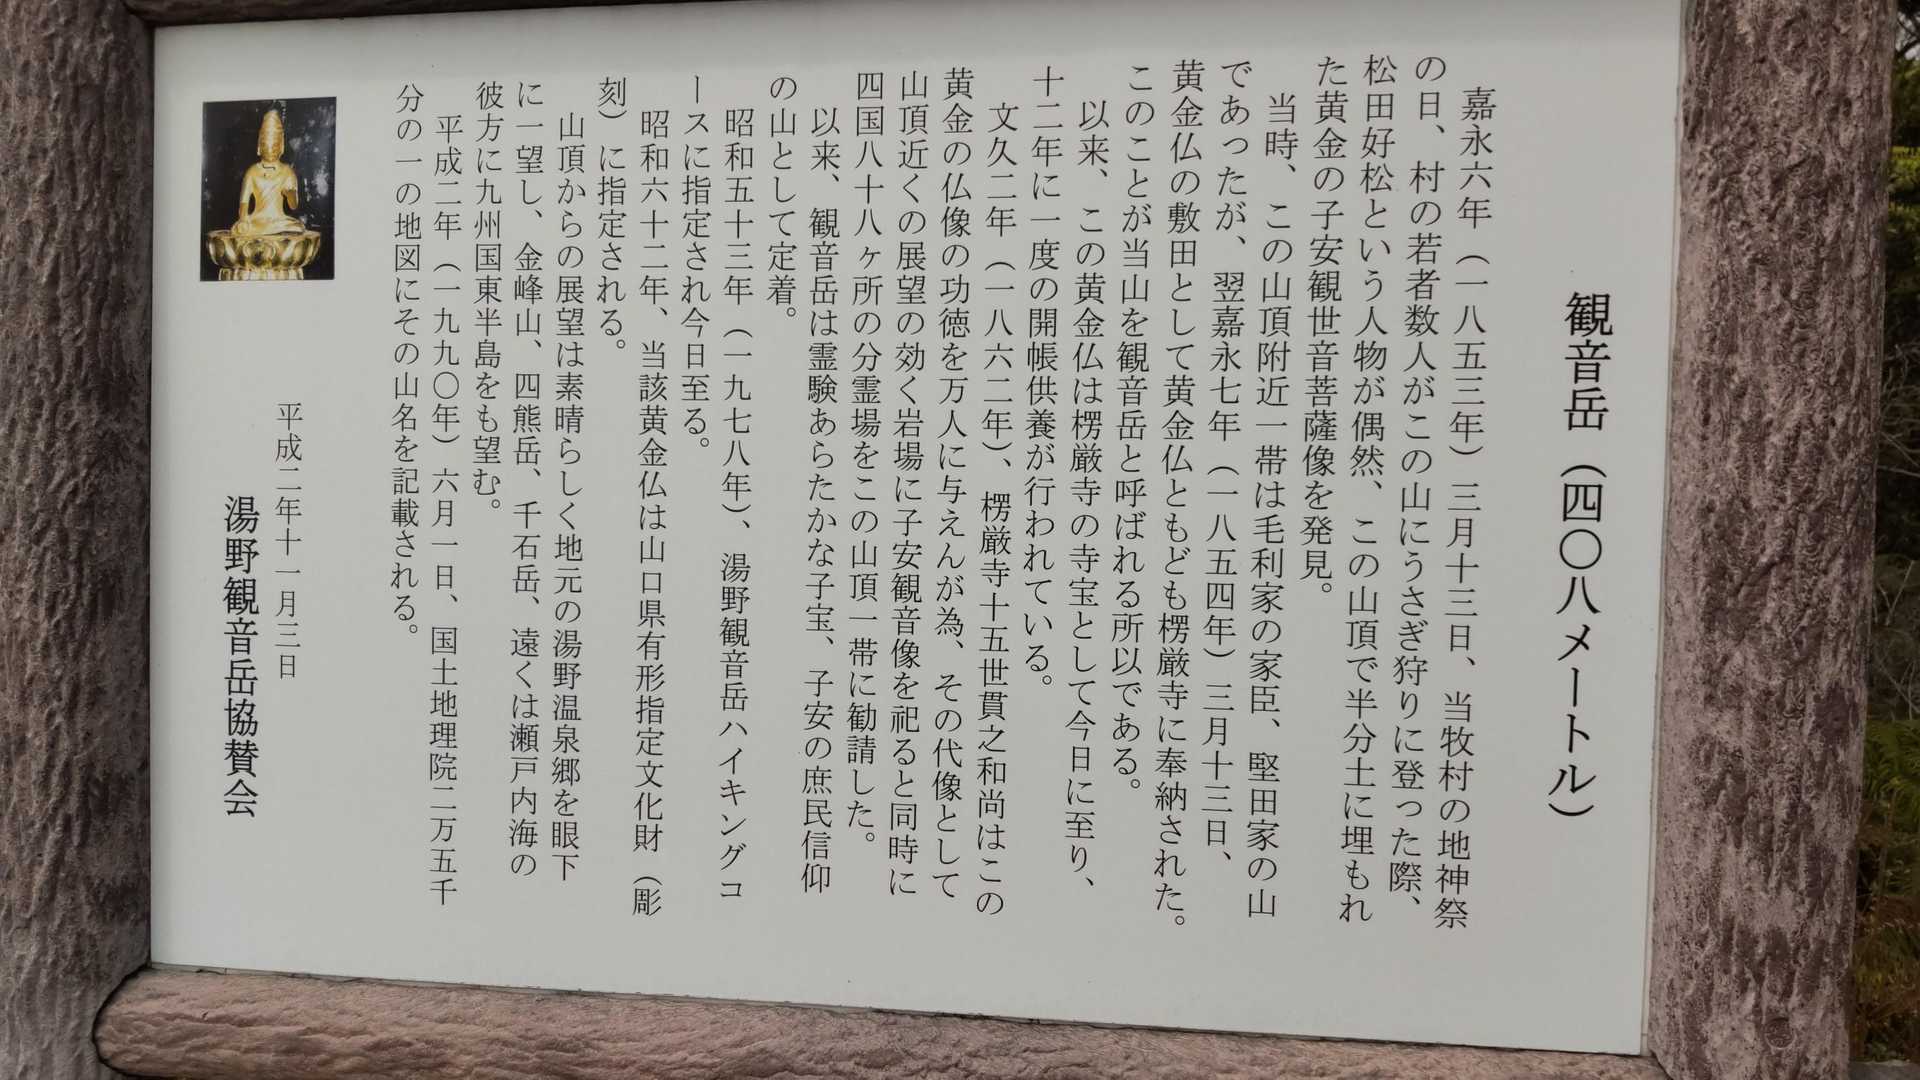 観音岳（四〇八メートル）
嘉永六年（一八五三年）三月十三日、当牧村の地神祭
の日、村の若者数人がこの山にうさぎ狩りに登った際、
松田好松という人物が偶然、この山頂で半分土に埋もれ
た黄金の子安観世音菩薩像を発見。
当時、この山頂附近一帯は毛利家の家臣、堅田家の山
であったが、翌嘉永七年（一八五四年）三月十三日、
黄金仏の敷田として黄金仏ともども楞厳寺に奉納された。
このことが当山を観音岳と呼ばれる所以である。
以来、この黄金仏は楞厳寺の寺宝として今日に至り、
十二年に一度の開帳供養が行われている。
文久二年（一八六二年）、楞厳寺十五世貫之和尚はこの
黄金の仏像の功徳を万人に与えんが為、その代像として
山頂近くの展望の効く岩場に子安観音像を祀ると同時に
四国八十八ヶ所の分霊場をこの山頂一帯に勧請した。
以来、観音岳は霊験あらたかな子宝、子安の庶民信仰
の山として定着。
昭和五十三年（一九七八年）、湯野観音岳ハイキングコ
ースに指定され今日至る。
昭和六十二年、当該黄金仏は山口県有形指定文化財（彫
刻）に指定される。
山頂からの展望は素晴らしく地元の湯野温泉郷を眼下
に一望し、金峰山、四熊岳、千石岳、遠くは瀬戸内海の
彼方に九州国東半島をも望む。
平成二年（一九九〇年）六月一日、国土地理院二万五千
分の一の地図にその山名を記載される。
平成二年十一月三日
湯野観音岳協賛会